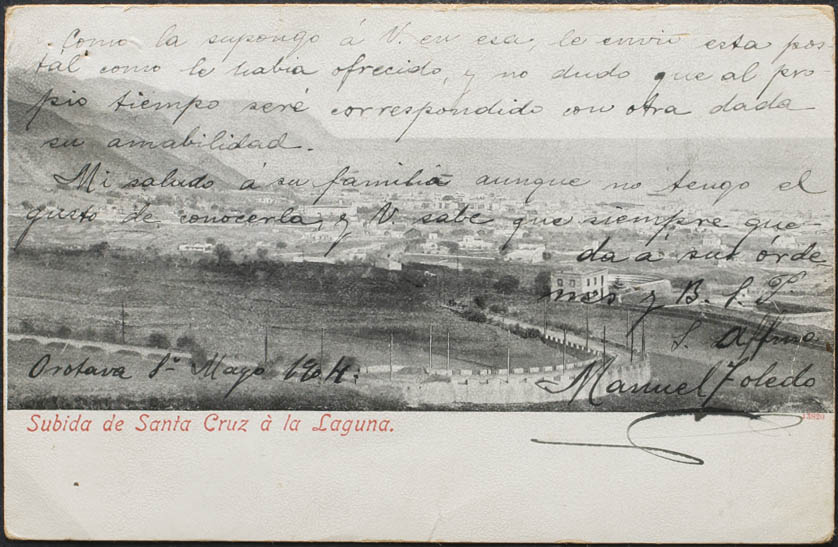 Como la supongo á V. en esa, le envío esta pos
tal como le habia ofrecido, y no dudo que al pro
pio tiempo seré correspondido con otra dada
su amabilidad.
Mi saludo á su familia aunque no tengo el
gusto de conocerla, y V. sabe que siempre que-
da a sus órde-
nes y B. S. P.
S. affmo
Orotava 8 Mayo 1904.
Manuel Toledo
Subida de Santa Cruz à la Laguna.